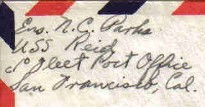 Ens. N.C. Parks
USS Reid
c/o Fleet Post Office
San Francisco, Cal.